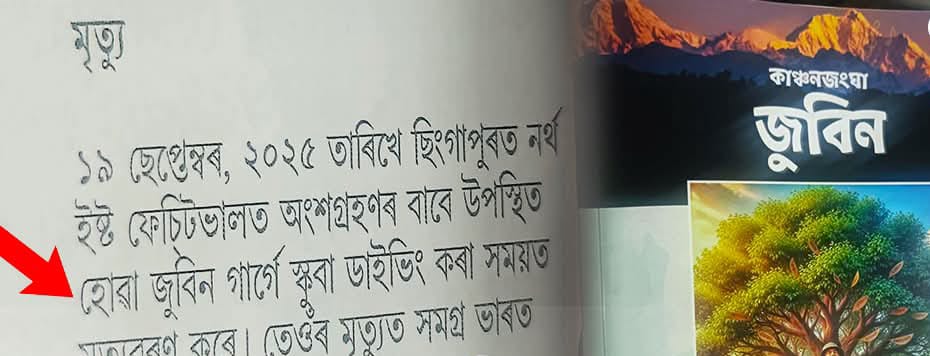 মৃত্যু
১৯ ছেপ্তেম্বৰ, ২০২৫ তাৰিখে ছিংগাপুৰত নৰ্থ
ইষ্ট ফেচিটভালত অংশগ্ৰহণৰ বাবে উপস্থিত
হোৱা জুবিন গাৰ্গে স্কুবা ডাইভিং কৰা সময়ত
মৃত্যুবৰণ কৰে। তেওঁৰ মৃত্যুত সমগ্ৰ ভাৰত
কাঞ্চনজংঘা
জুবিন